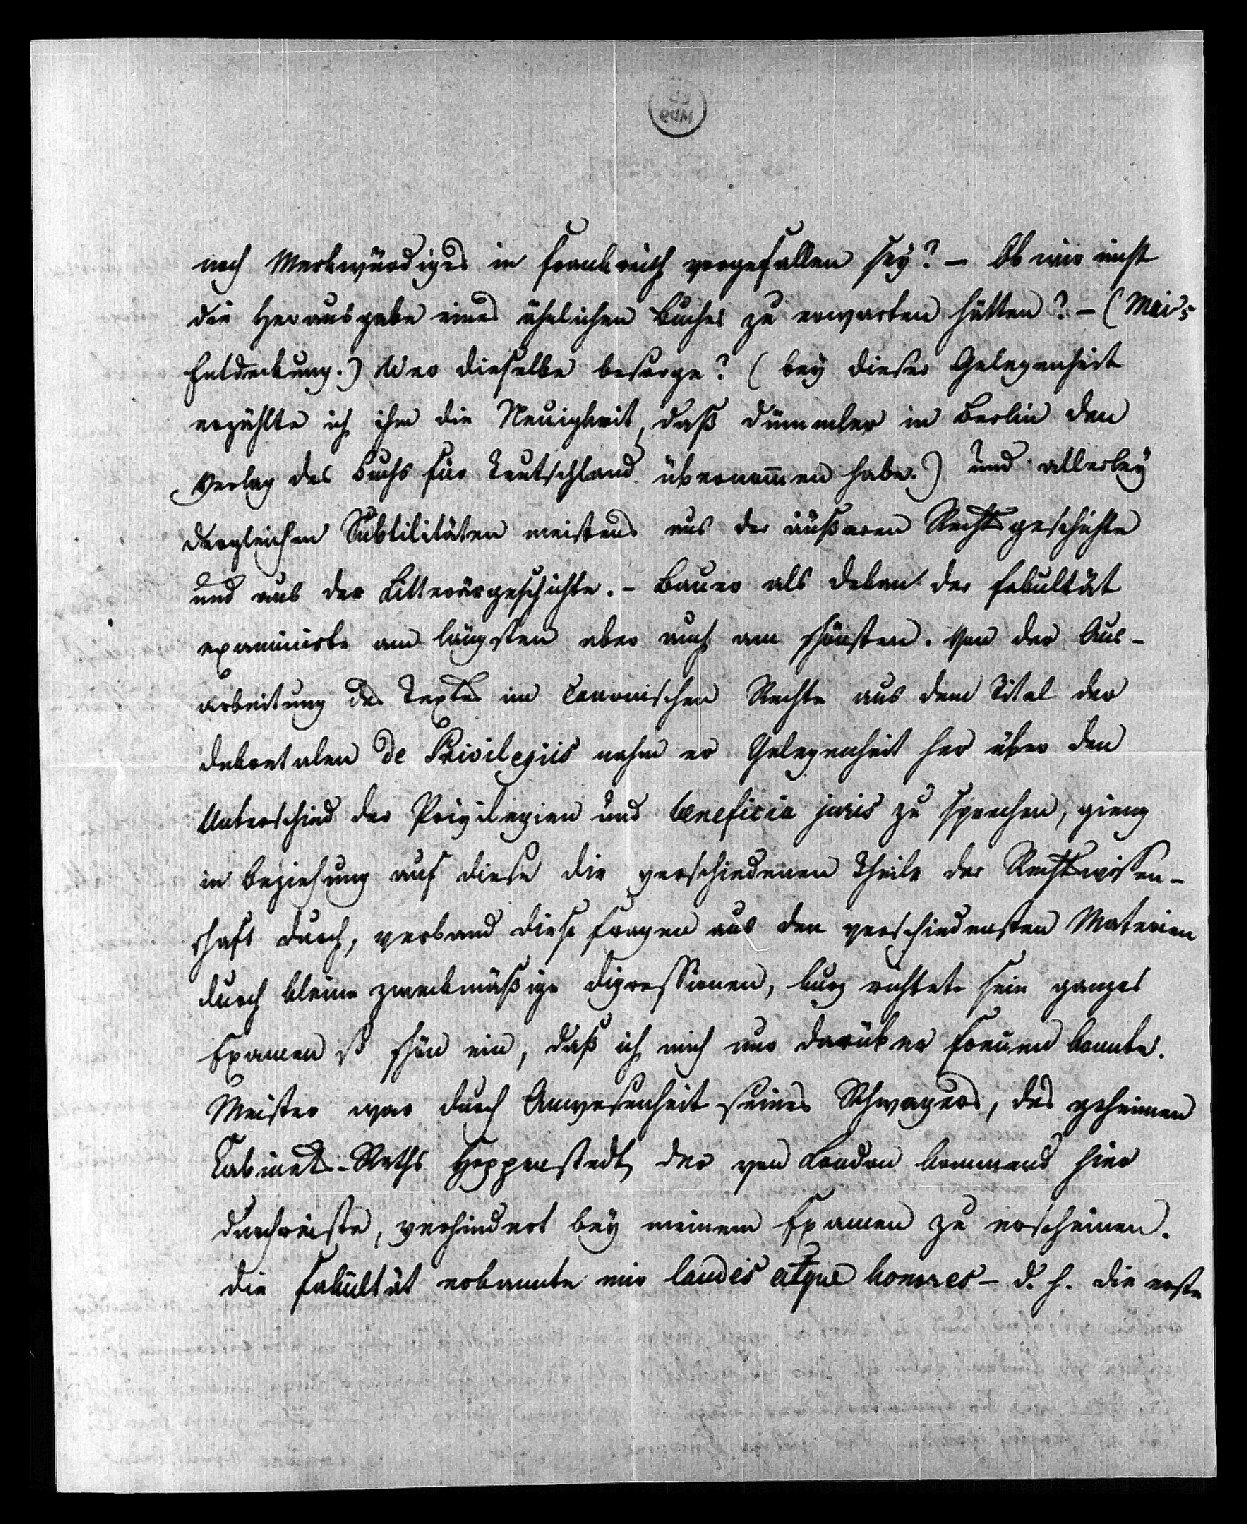 noch Merkwürdiges in Frankreich vorgefallen sey? – Ob wir nicht
die Herausgabe eines ähnlichen Buches zu erwarten hätten? – (Mai's
Entdeckung.) Wer dieselbe besorge? (bey dieser Gelegenheit
erzählte ich ihm die Neuigkeit, daß Dümmler in Berlin den
Verlag des Buchs für Teutschland übernommen habe.) und allerley
dergleichen Subtilitäten meistens aus der äußeren Rechtsgeschichte
und aus der Litterärgeschichte. – Bauer als Dekan der Fakultät
examinirte am längsten aber auch am schönsten. Von der Aus-
arbeitung des Textes im Canonischen Rechte aus dem Titel der
Dekretalen de Privilegiis nahm er Gelegenheit her über den
Unterschied der Privilegien und beneficia juris zu sprechen, gieng
in Beziehung auf diese die verschiedenen Theile der Rechtswissen-
schaft durch, verband diese Fragen aus den verschiedensten Materien
durch kleine zweckmäßige Digressionen, kurz richtete sein ganzes
Examen so schön ein, daß ich mich nur darüber freuen konnte.
Meister war durch Anwesenheit seines Schwagers, des geheimen
Cabinets-Raths Hoppenstedt, der von London kommend hier
durchreiste, verhindert bey meinem Examen zu erscheinen.
Die Fakultät erkannte mir laudes atque honores – d. h. die erste